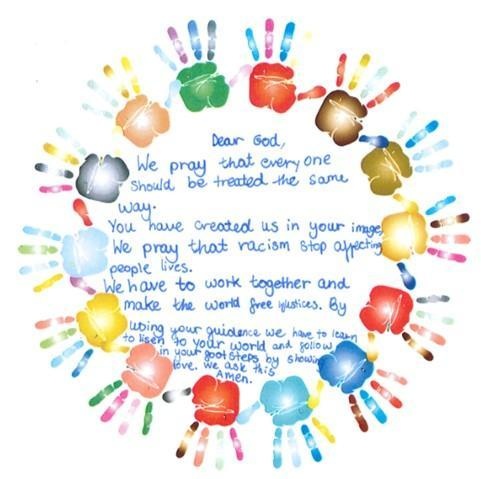 Dear God,
We pray that every one
should be treated the same
way.
You have created us in your image,
We pray that racism stop affecting
people lives.
We have to work together and
make the world free injustices. By
using your guidence we have to learn
to lisen to your world and follow
in your footsteps by showing
love. we ask this
Amen.